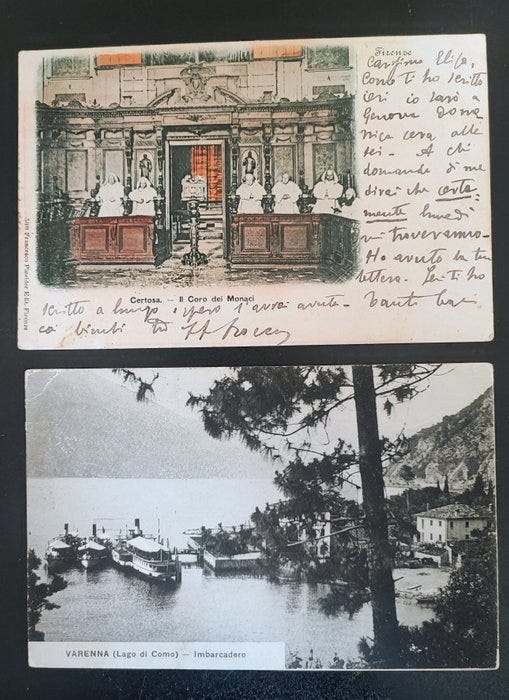 Firenze
Carissima Elisa,
Come ti ho scritto
ieri io sarò a
Genova dome
nica sera alle
sei - A chi
domande di me
dirai che certa
mente lunedì
vi troveremo -
Ho avuto la tua
lettera. Ieri ti ho
scritto a lungo, spero l'avrai avuta - Tanti baci
ai bimbi tuo
Certosa. — Il Coro dei Monaci
VARENNA (Lago di Como) — Imbarcadero